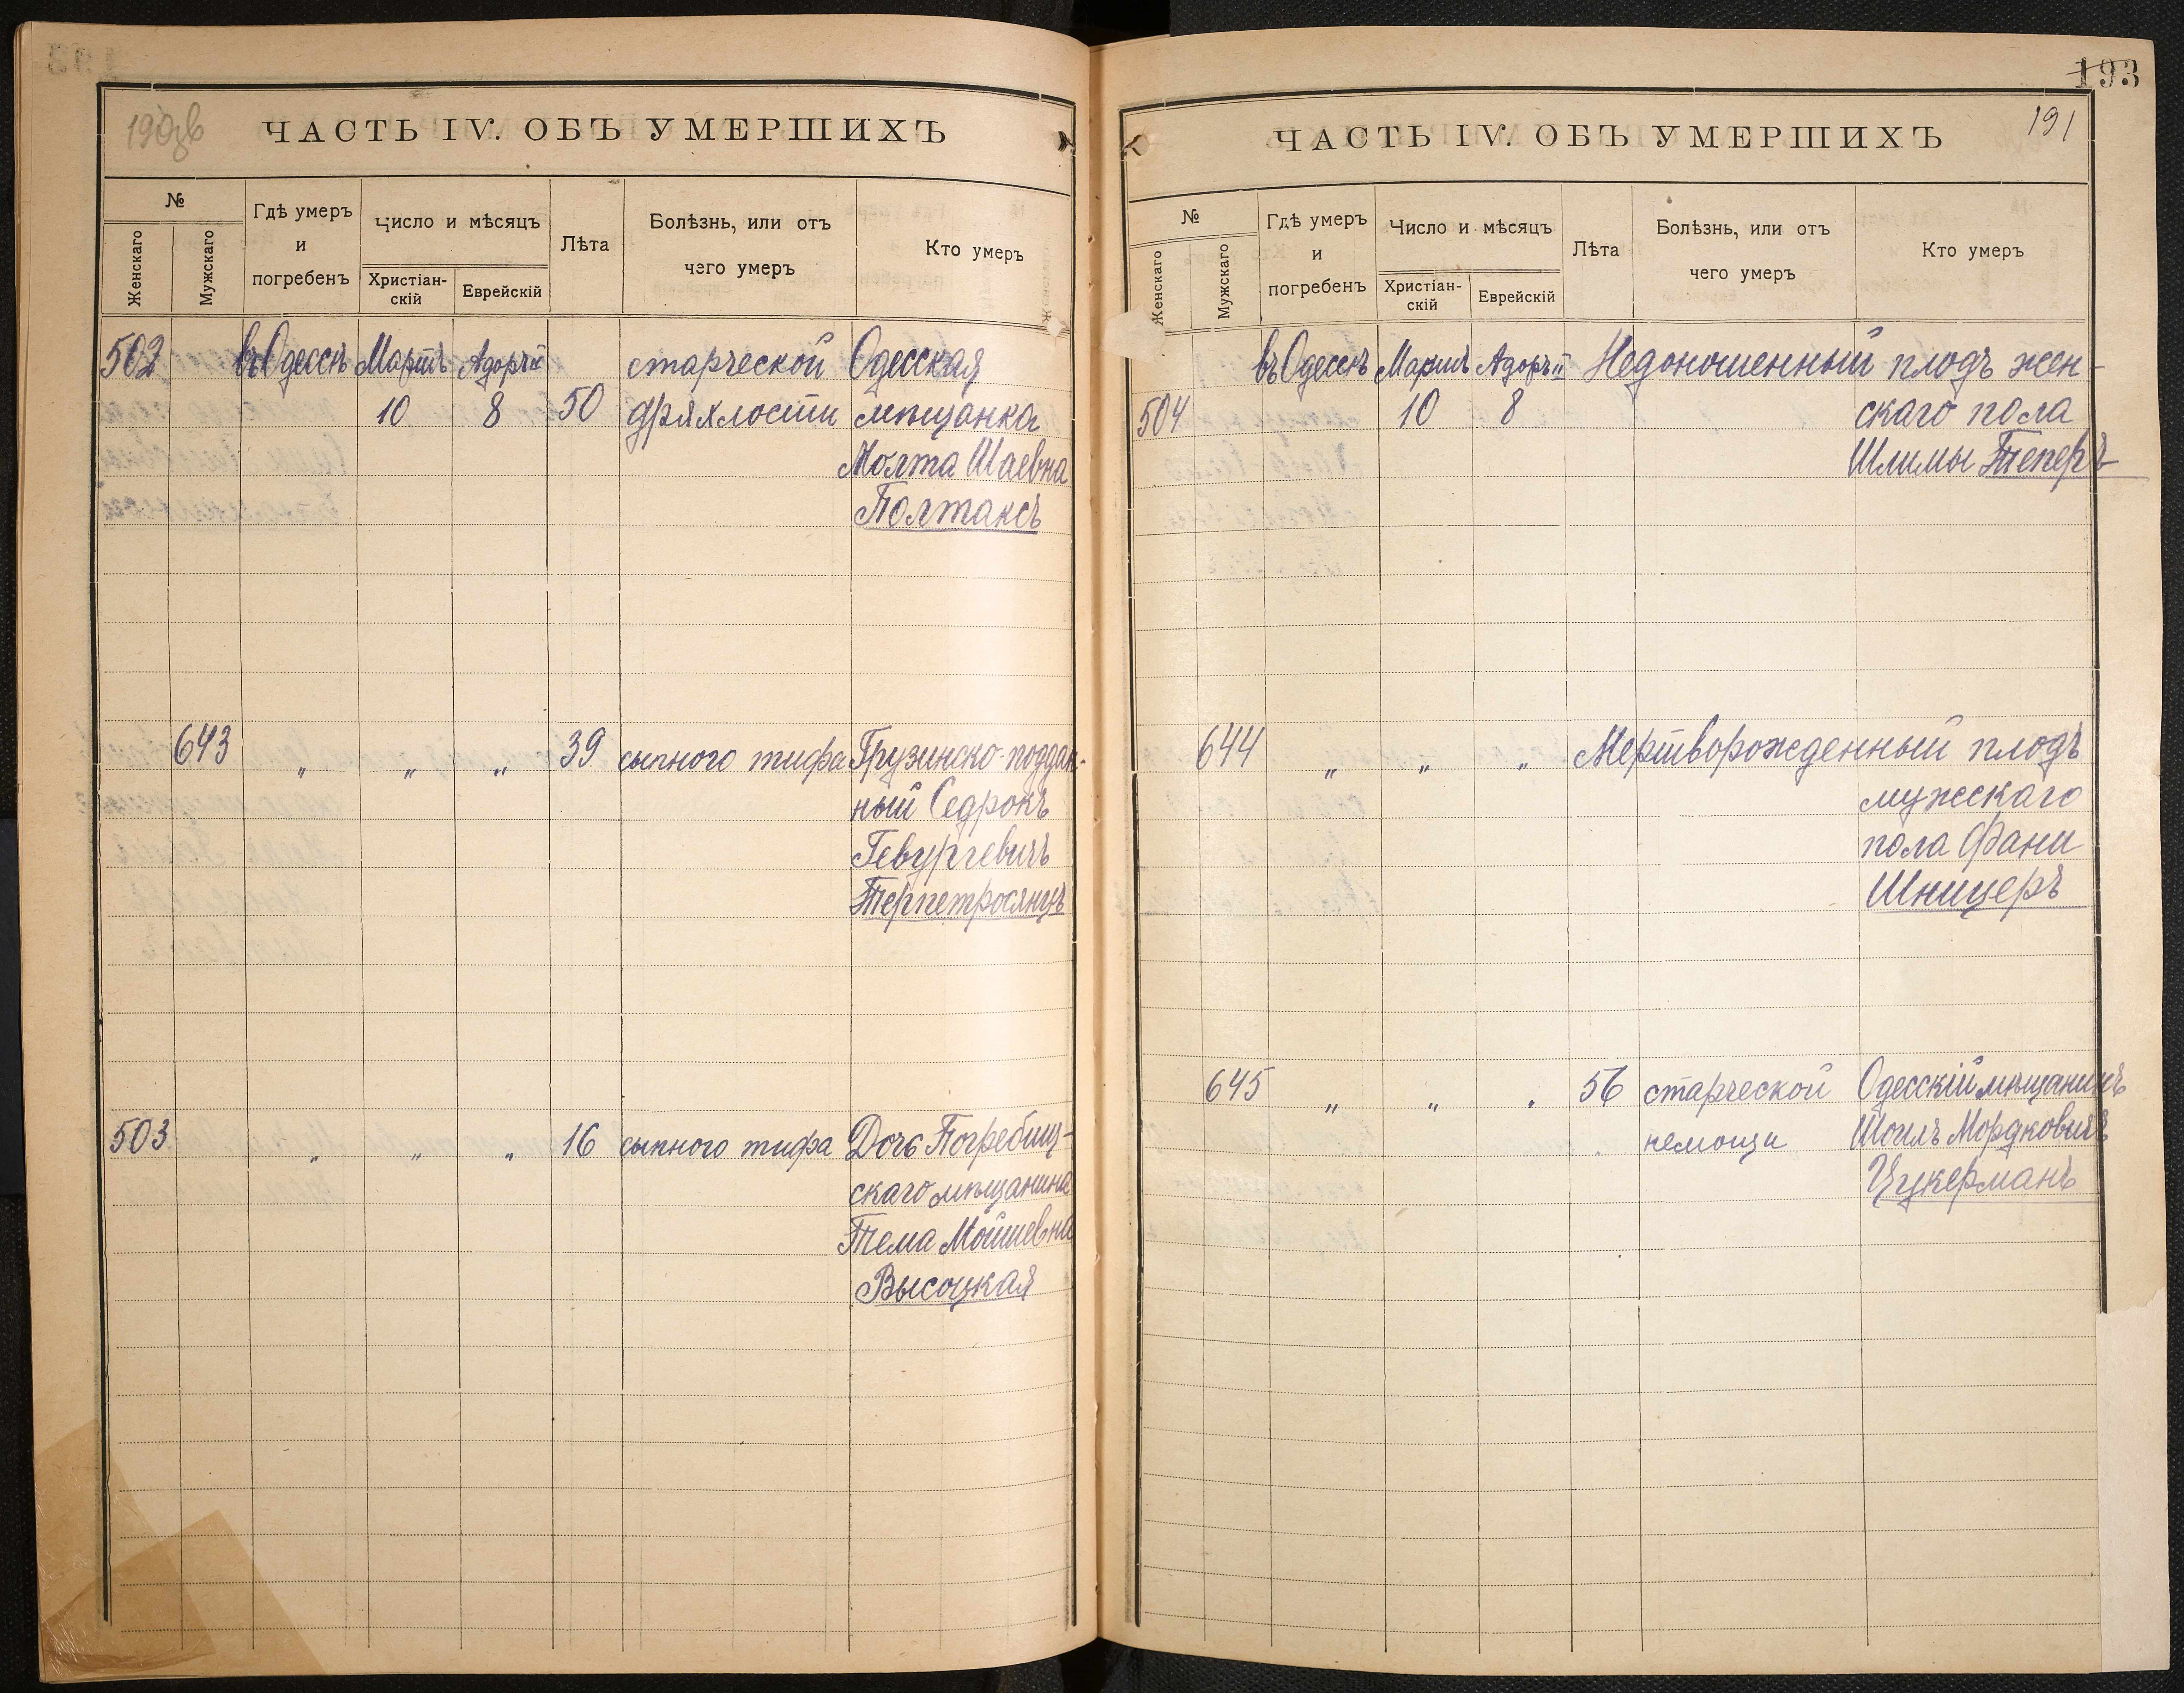 190об
ЧАСТЬ IV. ОБЪ УМЕРШИХЪ
№
Женскаго
Мужскаго
Гдѣ умеръ
и
погребенъ
Число и мѣсяцъ
Христіан-
скій
Еврейскій
Лѣта
Болѣзнь, или отъ
чего умеръ
Кто умеръ
502 въ Одессѣ Мартъ Адоръ II старческой Одесская
10 8 50 дряхлости мѣщанка
Молта Шаевна
Полтаксъ
643 " " " 39 сыпного тифа Грузинско-поддан-
ный Седрокъ
Гевургевичъ
Терпетросянцъ
503 " " " 16 сыпного тифа Дочь Погребищ-
скаго мѣщанина
Тема Мойшевна
Высоцкая
193
191
ЧАСТЬ IV. ОБЪ УМЕРШИХЪ
№
Женскаго
Мужскаго
Гдѣ умеръ
и
погребенъ
Число и мѣсяцъ
Христіан-
скій
Еврейскій
Лѣта
Болѣзнь, или отъ
чего умеръ
Кто умеръ
въ Одессѣ Мартъ Адоръ II Недоношенный плодъ жен-
504 10 8 скаго пола
Шлимы Теперъ
644 " " " Мертворожденный плодъ
мужескаго
пола Фани
Шницеръ
645 " " " 56 старческой Одесскій мѣщанинъ
немощи Шоилъ Мордковичъ
Цукерманъ